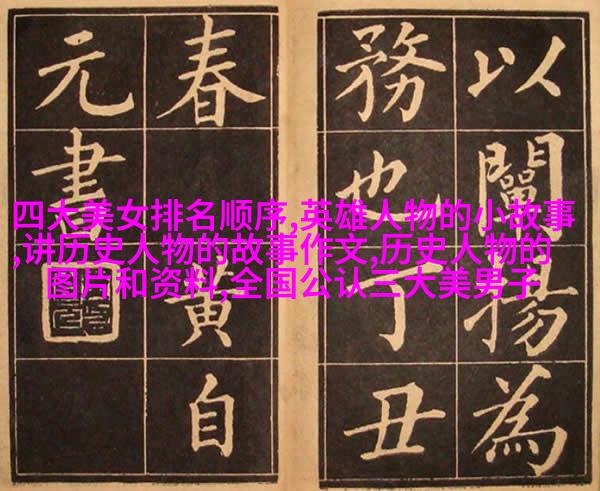 以闡揚為
務也丁丑
春黃自
元書
四大美女排名顺序,英雄人物的小故事
,讲历史人物的故事作文,历史人物的
图片和资料,全国公认三大美男子